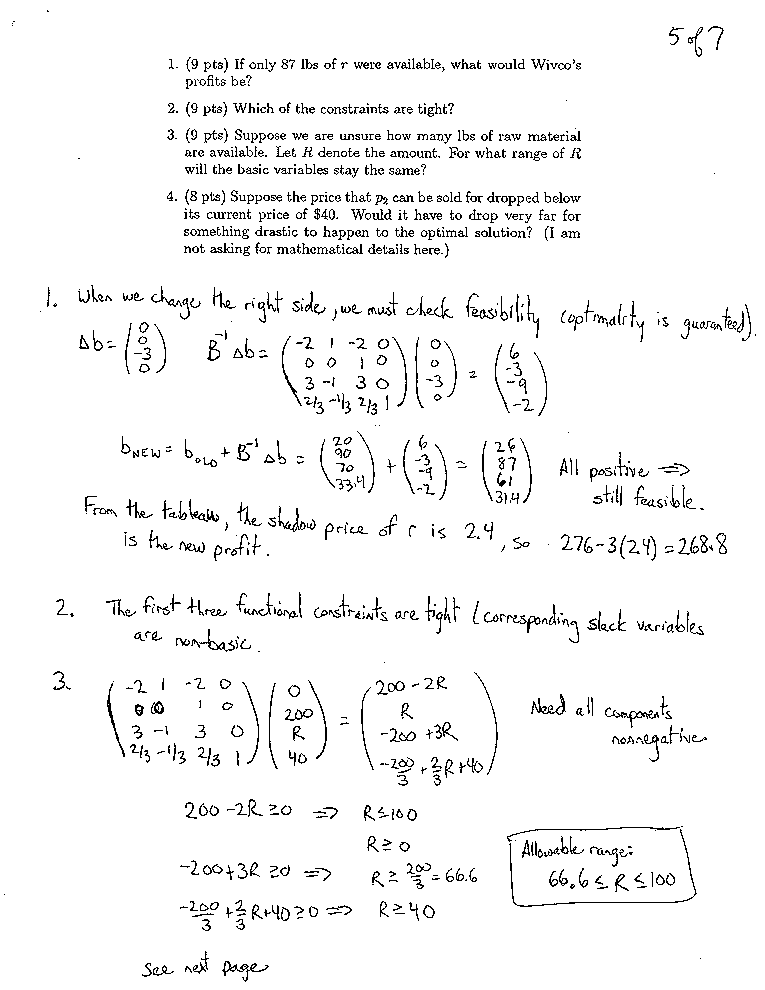 5 of 7
1. (9 pts) If only 87 lbs of r were available, what would Wivco's
profits be?
2. (9 pts) Which of the constraints are tight?
3. (9 pts) Suppose we are unsure how many lbs of raw material
are available. Let R denote the amount. For what range of R
will the basic variables stay the same?
4. (8 pts) Suppose the price that p₂ can be sold for dropped below
its current price of $40. Would it have to drop very far for
something drastic to happen to the optimal solution? (I am
not asking for mathematical details here.)
1. When we change the right side, we must check feasibility (optimality is guaranteed).
Δb = (0 0 -3 0) B⁻¹ Δb = (-2 1 -2 0
0 0 1 0
3 -1 3 0
2/3 -1/3 2/3 1) (0 0 -3 0) = (6 -3 -9 -2)
b_NEW = b_OLD + B⁻¹ Δb = (20 90 70 33.4) + (6 -3 -9 -2) = (26 87 61 31.4) All positive ⇒
still feasible.
From the tableau, the shadow price of r is 2.4, so 276-3(2.4) = 268.8
is the new profit.
2. The first three functional constraints are tight (corresponding slack variables
are non-basic.
3. (-2 1 -2 0
0 0 1 0
3 -1 3 0
2/3 -1/3 2/3 1) (0 200 R 40) = (200 - 2R
R
-200 + 3R
-200/3 + 2/3 R + 40) Need all components
nonnegative
200 - 2R ≥ 0 ⇒ R ≤ 100
R ≥ 0
-200 + 3R ≥ 0 ⇒ R ≥ 200/3 = 66.6
-200/3 + 2/3 R + 40 ≥ 0 ⇒ R ≥ 40
Allowable range:
66.6 ≤ R ≤ 100
See next page